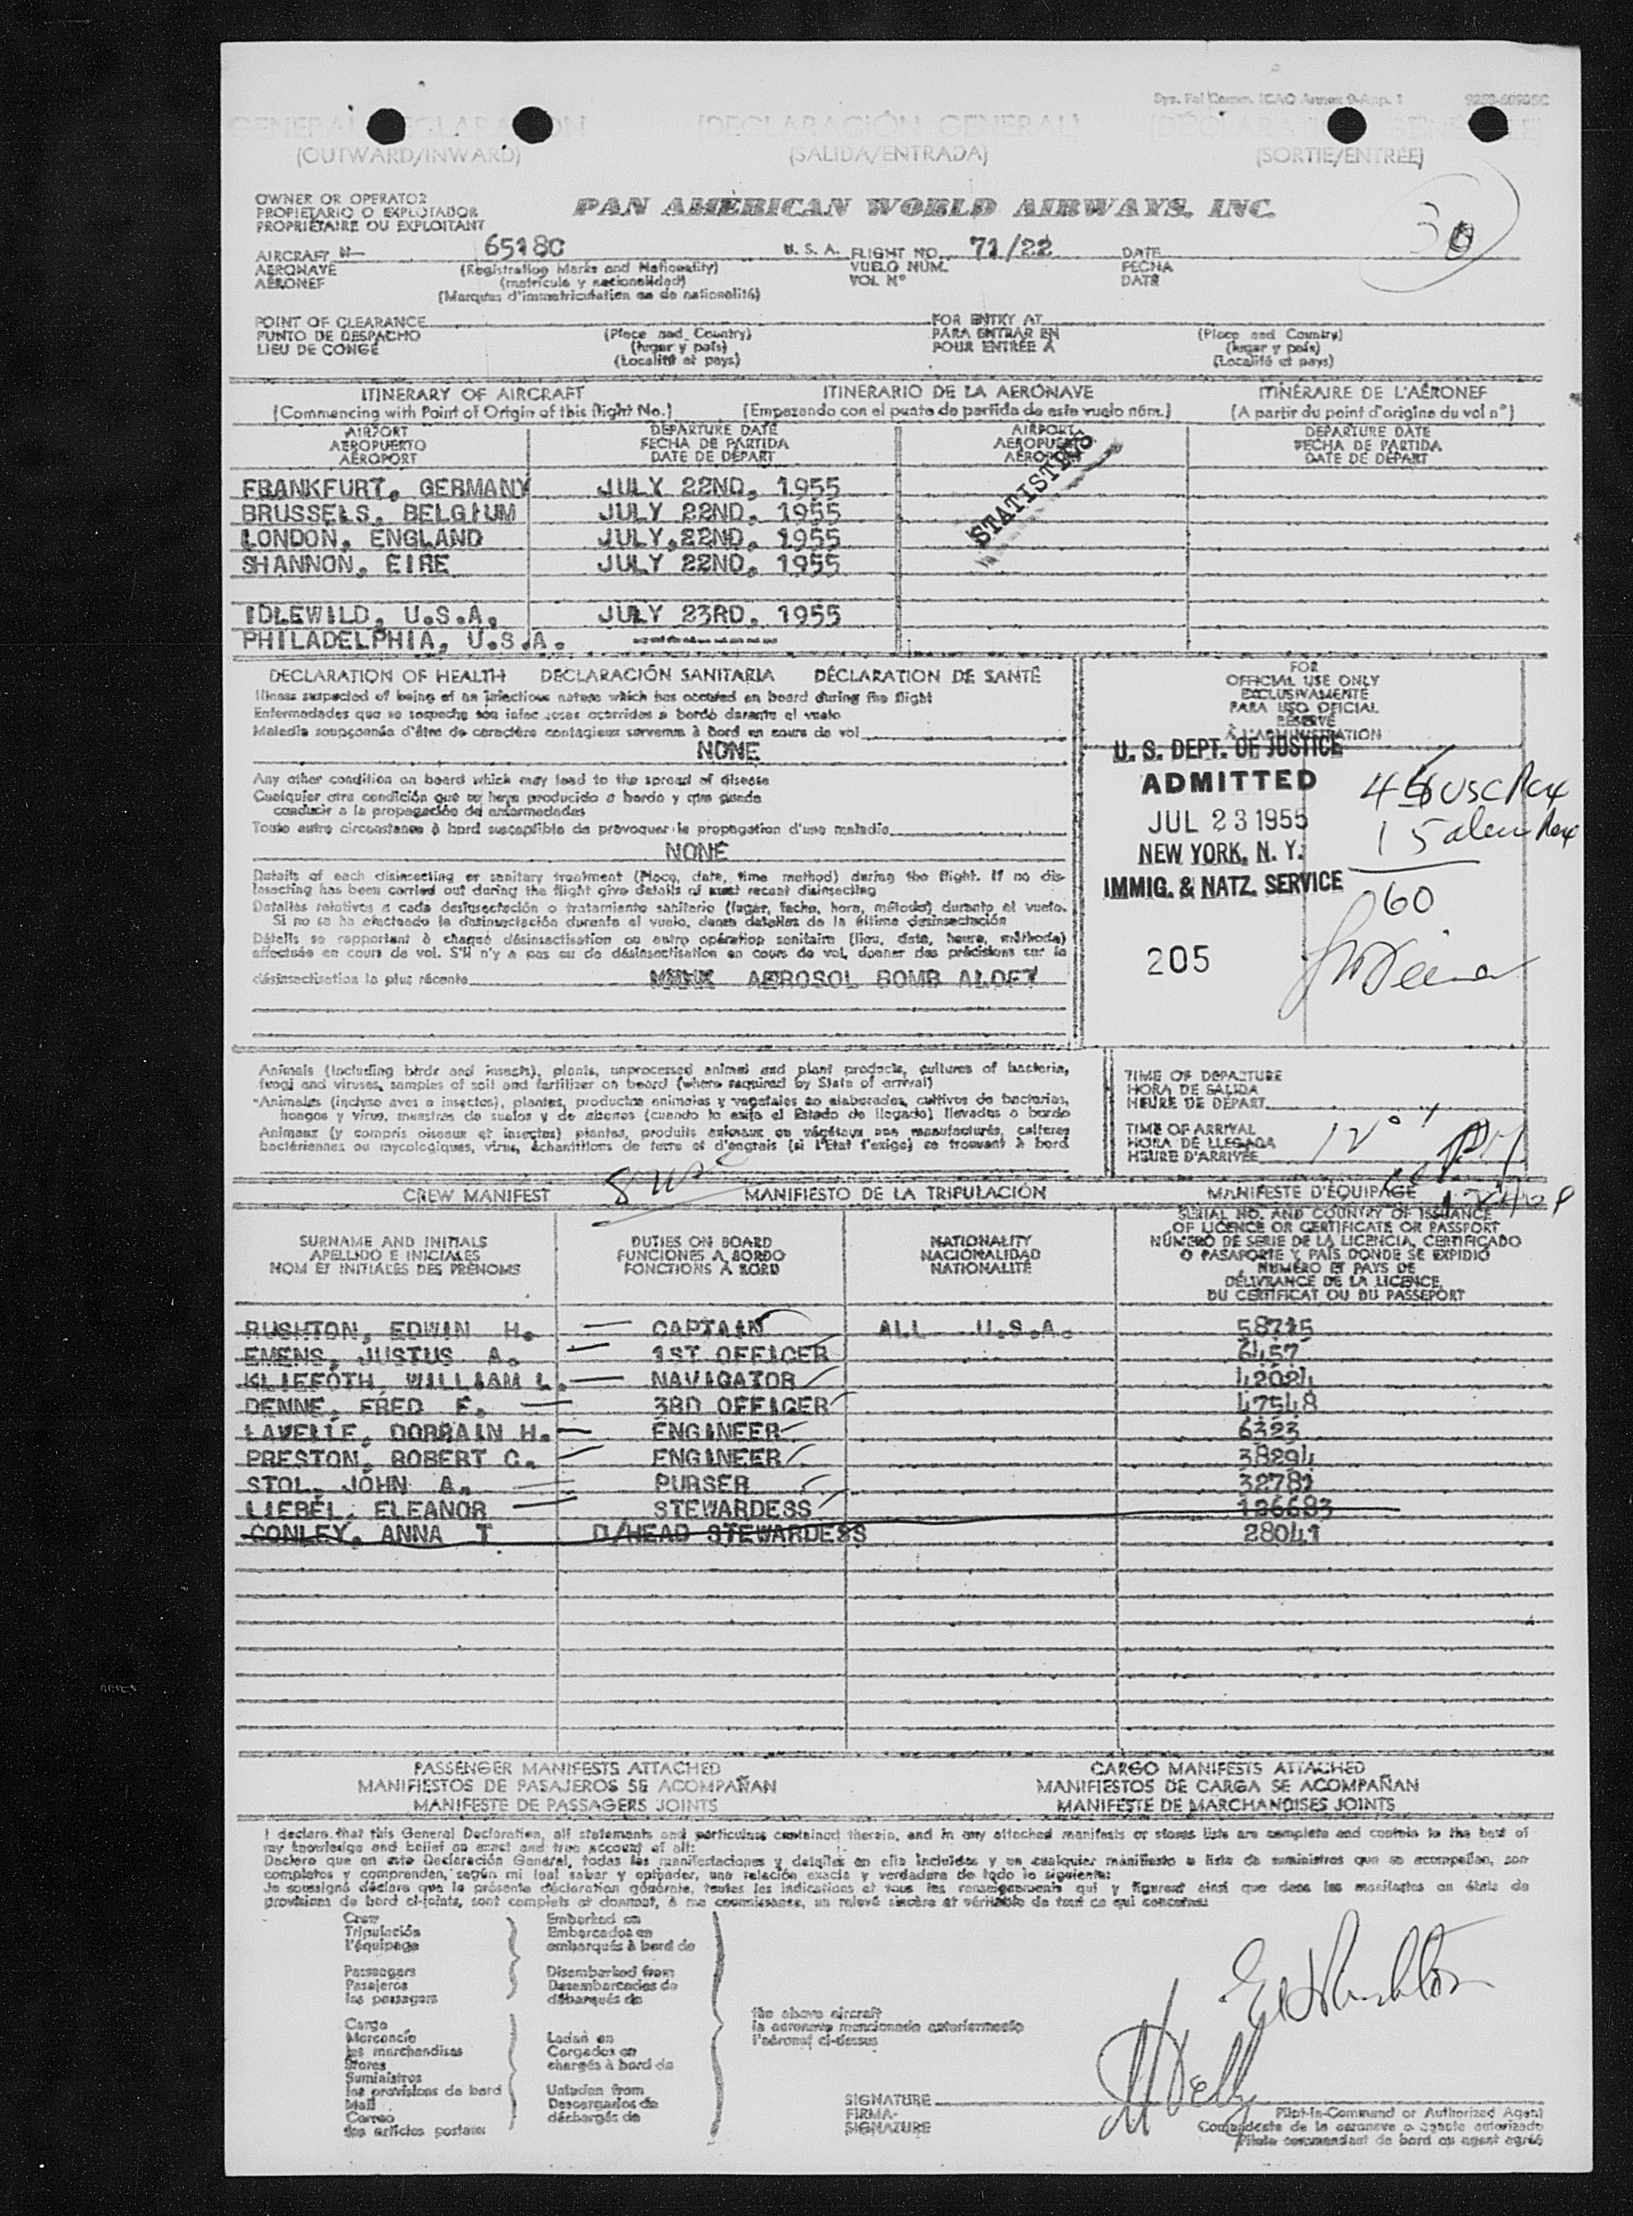 Sys. Fal Comm. ICAO Annex 9-App. 1
GENERAL DECLARATION [DECLARACIÓN GENERAL]
(OUTWARD/INWARD) (SALIDA/ENTRADA) (SORTIE/ENTRÉE)
30
OWNER OR OPERATOR
PROPIETARIO O EXPLOTADOR
PROPRIÉTAIRE OU EXPLOITANT
PAN AMERICAN WORLD AIRWAYS, INC.
AIRCRAFT N- 6518C U. S. A. FLIGHT NO. 71/22 DATE
AERONAVE (Registration Marks and Nationality) VUELO NUM. FECHA
AÉRONEF (matrícula y nacionalidad) VOL N° DATE
(Marques d'immatriculation et de nationalité)
POINT OF CLEARANCE FOR ENTRY AT
PUNTO DE DESPACHO (Place and Country) PARA ENTRAR EN (Place and Country)
LIEU DE CONGÉ (lugar y país) POUR ENTRÉE À (lugar y país)
(Localité et pays) (Localité et pays)
ITINERARY OF AIRCRAFT ITINERARIO DE LA AERONAVE ITINÉRAIRE DE L'AÉRONEF
(Commencing with Point of Origin of this flight No.) (Empezando con el punto de partida de este vuelo núm.) (A partir du point d'origine du vol n°)
AIRPORT DEPARTURE DATE AIRPORT DEPARTURE DATE
AEROPUERTO FECHA DE PARTIDA AEROPUERTO FECHA DE PARTIDA
AÉROPORT DATE DE DÉPART AÉROPORT DATE DE DÉPART
STATISTICS
FRANKFURT, GERMANY JULY 22ND, 1955
BRUSSELS, BELGIUM JULY 22ND, 1955
LONDON, ENGLAND JULY,22ND, 1955
SHANNON, EIRE JULY 22ND, 1955
IDLEWILD, U.S.A. JULY 23RD, 1955
PHILADELPHIA, U.S.A. ---------
DECLARATION OF HEALTH DECLARACIÓN SANITARIA DÉCLARATION DE SANTÉ
Illness suspected of being of an infectious nature which has occured on board during the flight
Enfermedades que se sospeche son infecciosas ocurridas a bordo durante el vuelo
Maladie soupçonnée d'être de caractère contagieux survenue à bord en cours de vol
NONE
Any other condition on board which may lead to the spread of disease
Cualquier otra condición que se haya producido a bordo y que pueda
conducir a la propagación de enfermedades
Toute autre circonstance à bord susceptible de provoquer la propagation d'une maladie
NONE
Details of each disinsecting or sanitary treatment (Place, date, time method) during the flight. If no dis-
insecting has been carried out during the flight give details of most recent disinsecting
Detalles relativos a cada desinsectación o tratamiento sanitario (lugar, fecha, hora, método) durante el vuelo.
Si no se ha efectuado la desinsectación durante el vuelo, dense detalles de la última desinsectación
Détails se rapportant à chaque désinsectisation ou autre opération sanitaire (lieu, date, heure, méthode)
effectuée en cours de vol. S'il n'y a pas eu de désinsectisation en cours de vol, donner des précisions sur la
désinsectisation la plus récente AEROSOL BOMB ALOFT
FOR
OFFICIAL USE ONLY
EXCLUSIVAMENTE
PARA USO OFICIAL
RÉSERVÉ
À L'ADMINISTRATION
U. S. DEPT. OF JUSTICE
ADMITTED
JUL 23 1955
NEW YORK, N. Y.
IMMIG. & NATZ. SERVICE
205
45 USC Pax
15 alien Pax
60
Animals (including birds and insects), plants, unprocessed animal and plant products, cultures of bacteria,
fungi and viruses, samples of soil and fertilizer on board (where required by State of arrival)
Animales (incluso aves e insectos), plantas, productos animales y vegetales no elaborados, cultivos de bacterias,
hongos y virus, muestras de suelos y de abonos (cuando lo exija el Estado de llegada) llevados a bordo
Animaux (y compris oiseaux et insectes) plantes, produits animaux ou végétaux non manufacturés, cultures
bactériennes ou mycologiques, virus, échantillons de terre et d'engrais (si l'Etat l'exige) se trouvant à bord
TIME OF DEPARTURE
HORA DE SALIDA
HEURE DE DÉPART
TIME OF ARRIVAL
HORA DE LLEGADA
HEURE D'ARRIVÉE 12 01 PM
8 usc
CREW MANIFEST MANIFIESTO DE LA TRIPULACIÓN MANIFESTE D'ÉQUIPAGE
SURNAME AND INITIALS DUTIES ON BOARD NATIONALITY SERIAL NO. AND COUNTRY OF ISSUANCE
APELLIDO E INICIALES FUNCIONES A BORDO NACIONALIDAD OF LICENCE OR CERTIFICATE OR PASSPORT
NOM ET INITIALES DES PRÉNOMS FONCTIONS À BORD NATIONALITÉ NÚMERO DE SERIE DE LA LICENCIA, CERTIFICADO
O PASAPORTE Y PAÍS DONDE SE EXPIDIÓ
NUMÉRO ET PAYS DE
DÉLIVRANCE DE LA LICENCE,
DU CERTIFICAT OU DU PASSEPORT
RUSHTON, EDWIN H. CAPTAIN ALL U.S.A. 58715
EMENS, JUSTUS A. 1ST OFFICER 6457
KLIEFOTH, WILLIAM L. NAVIGATOR 42024
DENNE, FRED E. 3RD OFFICER 47548
LAVELLE, DORRAIN H. ENGINEER 6323
PRESTON, ROBERT C. ENGINEER 38294
STOL, JOHN A. PURSER 32781
LIEBEL, ELEANOR STEWARDESS 126683
CONLEY, ANNA T D/HEAD STEWARDESS 28041
PASSENGER MANIFESTS ATTACHED CARGO MANIFESTS ATTACHED
MANIFIESTOS DE PASAJEROS SE ACOMPAÑAN MANIFIESTOS DE CARGA SE ACOMPAÑAN
MANIFESTE DE PASSAGERS JOINTS MANIFESTE DE MARCHANDISES JOINTS
I declare that this General Declaration, all statements and particulars contained therein, and in any attached manifests or stores lists are complete and contain to the best of
my knowledge and belief an exact and true account of all:
Declaro que en esta Declaración General, todas las manifestaciones y detalles en ella incluidos y en cualquier manifiesto o lista de suministros que se acompañan, son
completos y comprenden, según mi leal saber y entender, una relación exacta y verdadera de todo lo siguiente:
Je soussigné déclare que la présente déclaration générale, toutes les indications et tous les renseignements qui y figurent ainsi que dans les manifestes ou états de
provisions de bord ci-joints, sont complets et donnent, à ma connaissance, un relevé sincère et véritable de tout ce qui concerne:
Crew Embarked on
Tripulación Embarcados en
l'équipage embarqués à bord de
Passengers Disembarked from
Pasajeros Desembarcados de
les passagers débarqués de
Cargo
Mercancía Laden on
les marchandises Cargados en
Stores chargés à bord de
Suministros
les provisions de bord Unladen from
Mail Descargados de
Correo déchargés de
les articles postaux
the above aircraft
la aeronave mencionada anteriormente
l'aéronef ci-dessus
E H Rushton
SIGNATURE
FIRMA
SIGNATURE
Pilot-in-Command or Authorized Agent
Comandante de la aeronave o agente autorizado
Pilote commandant de bord ou agent agréé